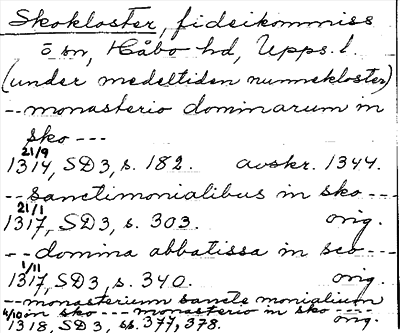 Skokloster, fideikommiss
ö sn, Håbo hd, Upps. l.
(under medeltiden nunnekloster)
-- monasterio dominarum in
sko ---
21/9
1314, SD3, s. 182. avskr. 1344.
-- sanctimonialibus in sko ---
21/1
1317, SD3, s. 303. orig.
-- domina abbatissa in sco ---
1/11
1317, SD3, s. 340. orig.
-- monasterium sancte monialium
in sko --- monasterio in sko ---
4/10
1318, SD3, ss. 377, 378. orig.